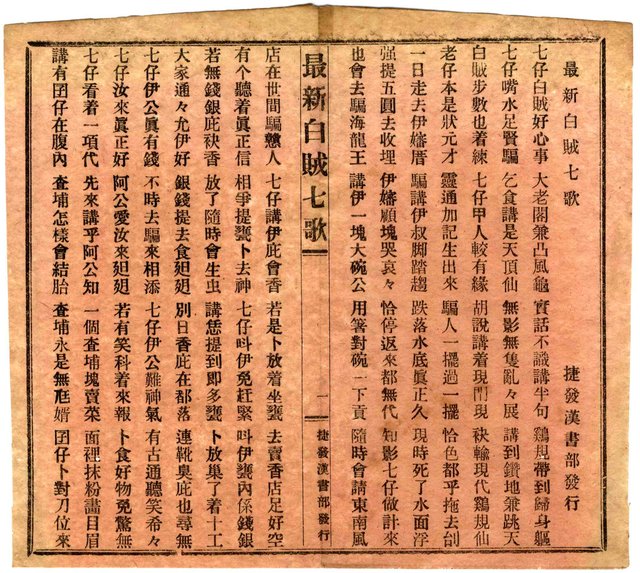 最新白賊七歌 捷發漢書部發行
七仔白賊好心事 大老閣兼凸風龜 實話不識講半句 鷄規帶到歸身軀
七仔嘴水足賢騙 乞食講是天頂仙 無影無隻亂々展 講到鑽地兼跳天
白賊步數也着練 七仔甲人較有緣 胡說講着現開現 袂輸現代鷄規仙
老仔本是狀元才 靈通加記生出來 騙人一擺過一擺 恰色都乎拖去刣
一日走去伊嬸厝 騙講伊叔脚踏趨 跌落水底眞正久 現時死了水面浮
强提五圓去收埋 伊嬸顧塊哭哀々 恰停返來都無代 知影七仔做計來
也會去騙海龍王 講伊一塊大碗公 用箸對碗一下貢 隨時會請東南風
最新白賊七歌 一 捷發漢書部發行
店在世間騙戇人 七仔講伊庇會香 若是卜放着坐甕 去賣香店足好空
有个聽着眞正信 相爭提甕卜去神 七仔呌伊免趕緊 呌伊甕內係錢銀
若無錢銀庇袂香 放了隨時會生虫 講恁提到即多甕 卜放巢了着十工
大家通々允伊好 銀錢提去食廻廻 別日香庇在都落 連靴臭庇也尋無
七仔伊公眞有錢 不時去騙來相添 七仔伊公難神氣 有古通聽笑希々
七仔汝來眞正好 阿公愛汝來廻廻 若有笑科着來報 卜食好物免驚無
七仔看着一項代 先來講乎阿公知 一個查埔塊賣菜 面裡抹粉畫目眉
講有囝仔在腹內 查埔怎樣會結胎 查埔永是無尪婿 囝仔卜對刀位來